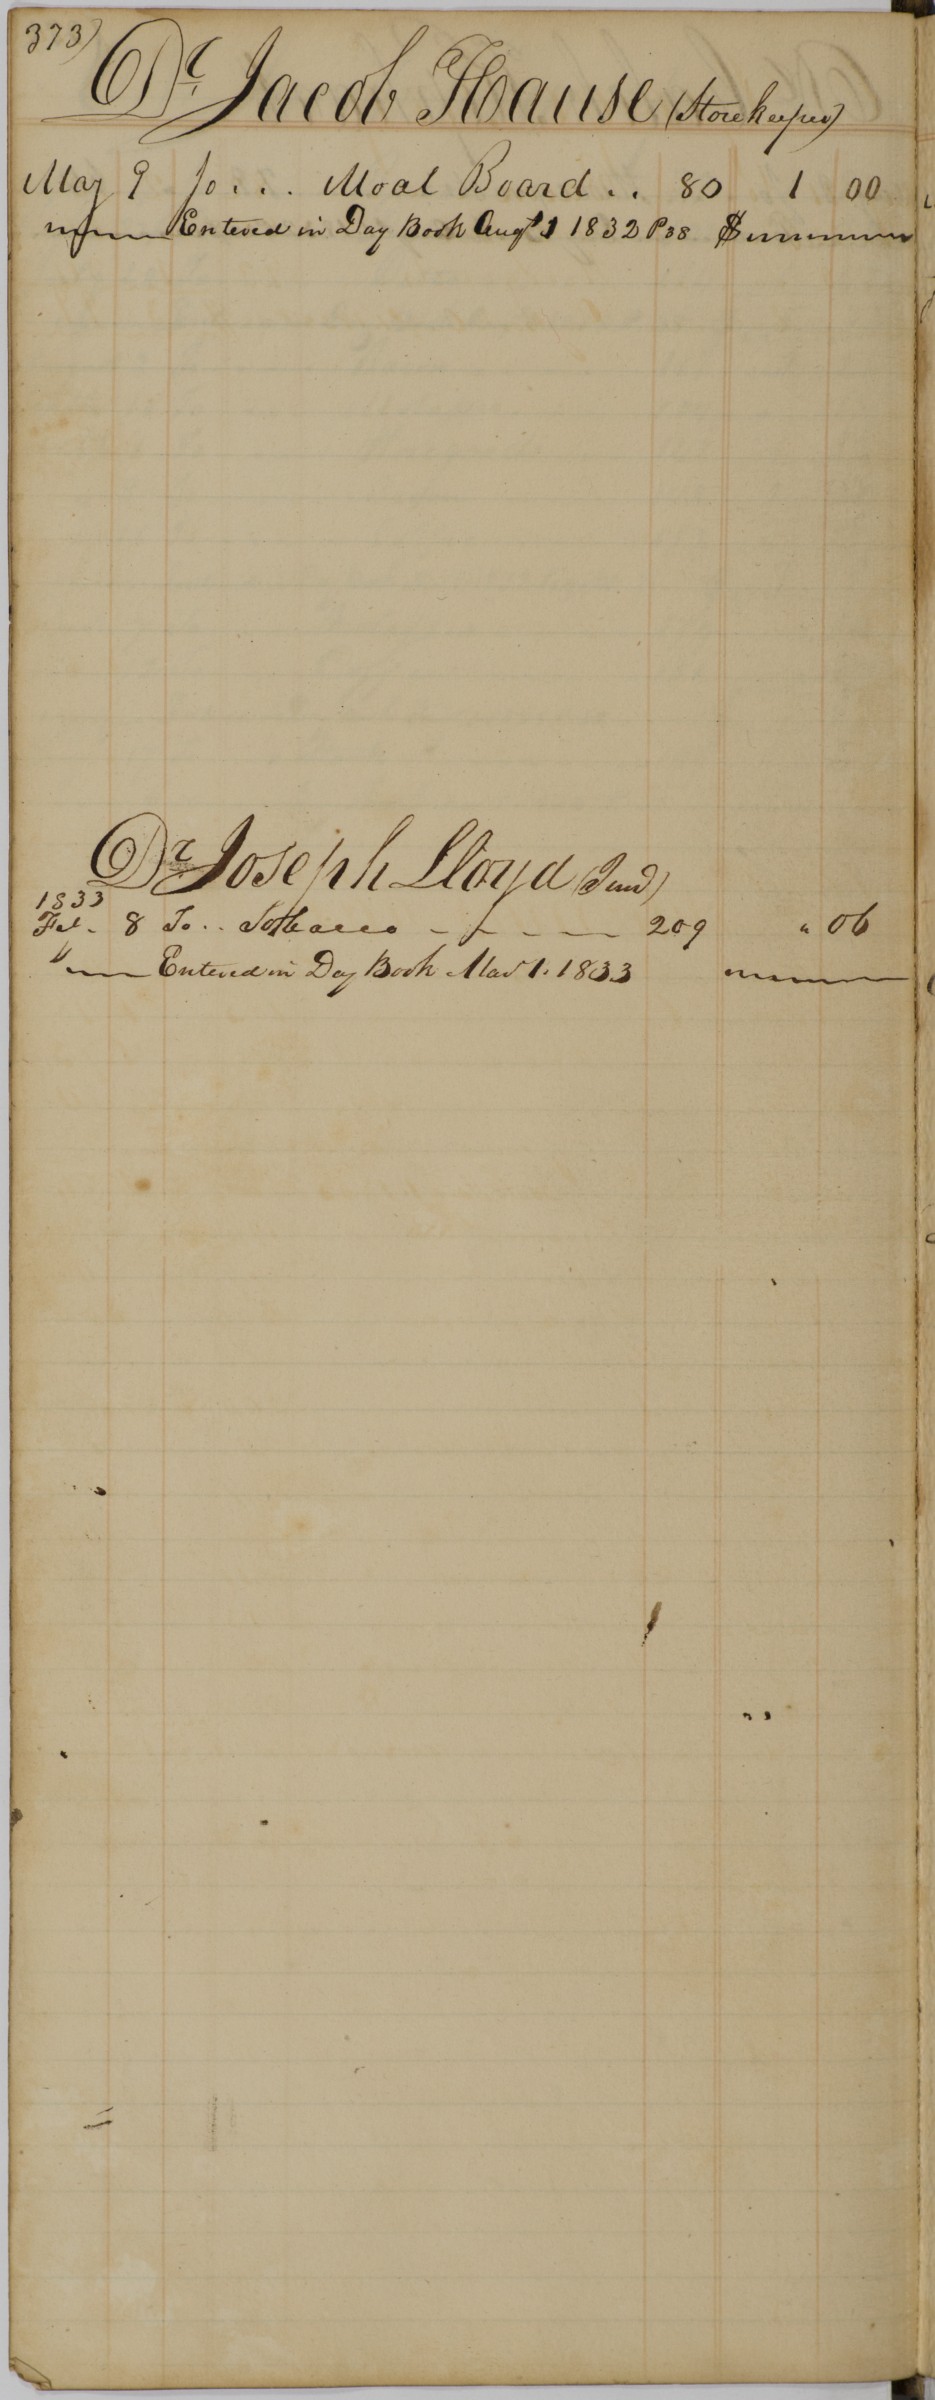 373)
Dr Jacob Hause (Storekeeper)
May 9 To... Moal Board.. 80 1 00
Entered in Day Book Augt 1 1832 P 38 $
Dr Joseph Lloyd (Junr)
1833
Feb. 8 To.. Tobacco - - - - 209 " 06
Entered in Day Book Mar 1. 1833